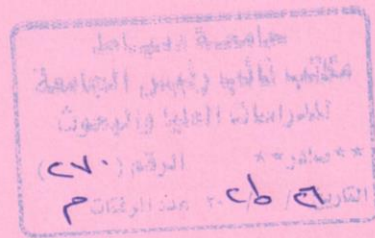 جامعة دمياط
مكتب نائب رئيس الجامعة
للدراسات العليا والبحوث
**صادر** الرقم (٢٧٠)
التاريخ / / ٢٠ عدد المرفقات